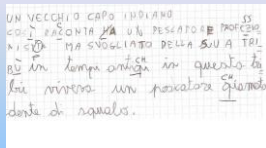 UN VECCHIO CAPO INDIANO
COSÌ RACONTA HA UN PESCATORE PROFEZIO SS
NISTA MA SVOGLIATO DELLA SUA TRI
BÙ in tempi antiqui ch in questo ta
bù viveva un pescatore giamot ch
dente di squalo.